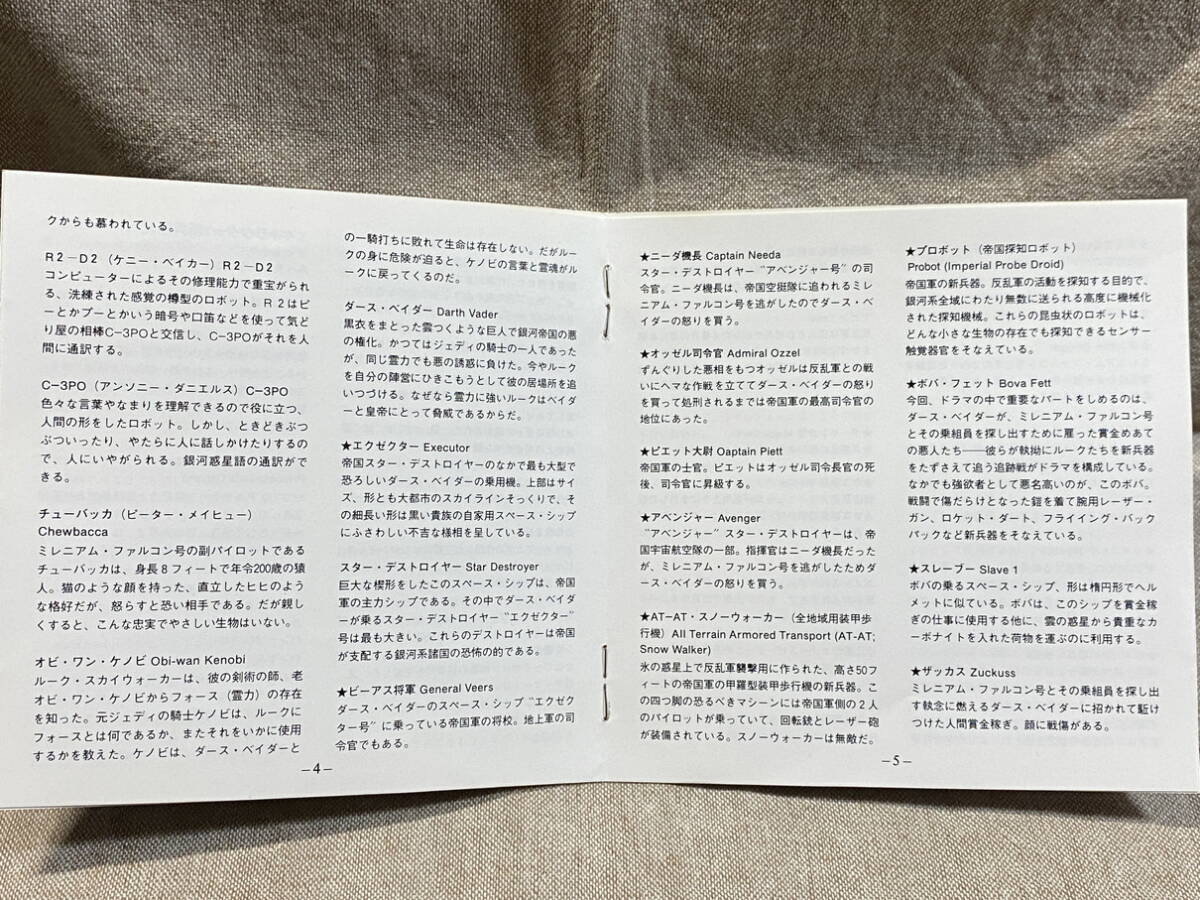 クからも慕われている。
R2−D2（ケニー・ベイカー）R2−D2
コンピューターによるその修理能力で重宝がられ
る、洗練された感覚の樽型のロボット。R2はピ
ーとかブーとかいう暗号や口笛などを使って気ど
り屋の相棒C−3POと交信し、C−3POがそれを人
間に通訳する。
C−3PO（アンソニー・ダニエルス）C−3PO
色々な言葉やなまりを理解できるので役に立つ、
人間の形をしたロボット。しかし、ときどきぶつ
ぶついったり、やたらに人に話しかけたりするの
で、人にいやがられる。銀河惑星語の通訳がで
きる。
チューバッカ（ピーター・メイヒュー）
Chewbacca
ミレニアム・ファルコン号の副パイロットである
チューバッカは、身長8フィートで年令200歳の猿
人。猫のような顔を持った、直立したヒヒのよう
な格好だが、怒らすと恐い相手である。だが親し
くすると、こんな忠実でやさしい生物はいない。
オビ・ワン・ケノビ Obi-wan Kenobi
ルーク・スカイウォーカーは、彼の剣術の師、老
オビ・ワン・ケノビからフォース（霊力）の存在
を知った。元ジェディの騎士ケノビは、ルークに
フォースとは何であるか、またそれをいかに使用
するかを教えた。ケノビは、ダース・ベイダーと
の一騎打ちに敗れて生命は存在しない。だがルー
クの身に危険が迫ると、ケノビの言葉と霊魂がル
ークに戻ってくるのだ。
ダース・ベイダー Darth Vader
黒衣をまとった雲つくような巨人で銀河帝国の悪
の権化。かつてはジェディの騎士の一人であった
が、同じ霊力でも悪の誘惑に負けた。今やルーク
を自分の陣営にひきこもうとして彼の居場所を追
いつづける。なぜなら霊力に強いルークはベイダ
ーと皇帝にとって脅威であるからだ。
★エクゼクター Executor
帝国スター・デストロイヤーのなかで最も大型で
恐ろしいダース・ベイダーの乗用機。上部はサイ
ズ、形とも大都市のスカイラインそっくりで、そ
の細長い形は黒い貴族の自家用スペース・シップ
にふさわしい不吉な様相を呈している。
スター・デストロイヤー Star Destroyer
巨大な楔形をしたこのスペース・シップは、帝国
軍の主力シップである。その中でダース・ベイダ
ーが乗るスター・デストロイヤー“エクゼクター”
号は最も大きい。これらのデストロイヤーは帝国
が支配する銀河系諸国の恐怖の的である。
★ビーアス将軍 General Veers
ダース・ベイダーのスペース・シップ“エクゼク
ター号”に乗っている帝国軍の将校。地上軍の司
令官でもある。
−4−
★ニーダ機長 Captain Needa
スター・デストロイヤー“アベンジャー号”の司
令官。ニーダ機長は、帝国空挺隊に追われるミレ
ニアム・ファルコン号を逃がしたのでダース・ベ
イダーの怒りを買う。
★オッゼル司令官 Admiral Ozzel
ずんぐりした悪相をもつオッゼルは反乱軍との戦
いにヘマな作戦を立ててダース・ベイダーの怒り
を買って処刑されるまでは帝国軍の最高司令官の
地位にあった。
★ピエット大尉 Oaptain Piett
帝国軍の士官。ピエットはオッゼル司令長官の死
後、司令官に昇級する。
★アベンジャー Avenger
“アベンジャー”スター・デストロイヤーは、帝
国宇宙航空隊の一部。指揮官はニーダ機長だった
が、ミレニアム・ファルコン号を逃がしたためダ
ース・ベイダーの怒りを買う。
★AT−AT・スノーウォーカー（全地域用装甲歩
行機）All Terrain Armored Transport (AT-AT;
Snow Walker)
氷の惑星上で反乱軍襲撃用に作られた、高さ50フ
ィートの帝国軍の甲羅型装甲歩行機の新兵器。こ
の四つ脚の恐るべきマシーンには帝国軍側の2人
のパイロットが乗っていて、回転銃とレーザー砲
が装備されている。スノーウォーカーは無敵だ。
−5−
★プロボット（帝国探知ロボット）
Probot (Imperial Probe Droid)
帝国軍の新兵器。反乱軍の活動を探知する目的で、
銀河系全域にわたり無数に送られる高度に機械化
された探知機械。これらの昆虫状のロボットは、
どんな小さな生物の存在でも探知できるセンサー
触覚器官をそなえている。
★ボバ・フェット Bova Fett
今回、ドラマの中で重要なパートをしめるのは、
ダース・ベイダーが、ミレニアム・ファルコン号
とその乗組員を探し出すために雇った賞金めあて
の悪人たち——彼らが執拗にルークたちを新兵器
をたずさえて追う追跡戦がドラマを構成している。
なかでも強欲者として悪名高いのが、このボバ。
戦闘で傷だらけとなった鎧を着て腕用レーザー・
ガン、ロケット・ダート、フライイング・バック
パックなど新兵器をそなえている。
★スレーブー Slave 1
ボバの乗るスペース・シップ、形は楕円形でヘル
メットに似ている。ボバは、このシップを賞金稼
ぎの仕事に使用する他に、雲の惑星から貴重なカ
ーボナイトを入れた荷物を運ぶのに利用する。
★ザッカス Zuckuss
ミレニアム・ファルコン号とその乗組員を探し出
す執念に燃えるダース・ベイダーに招かれて駆け
つけた人間賞金稼ぎ。顔に戦傷がある。